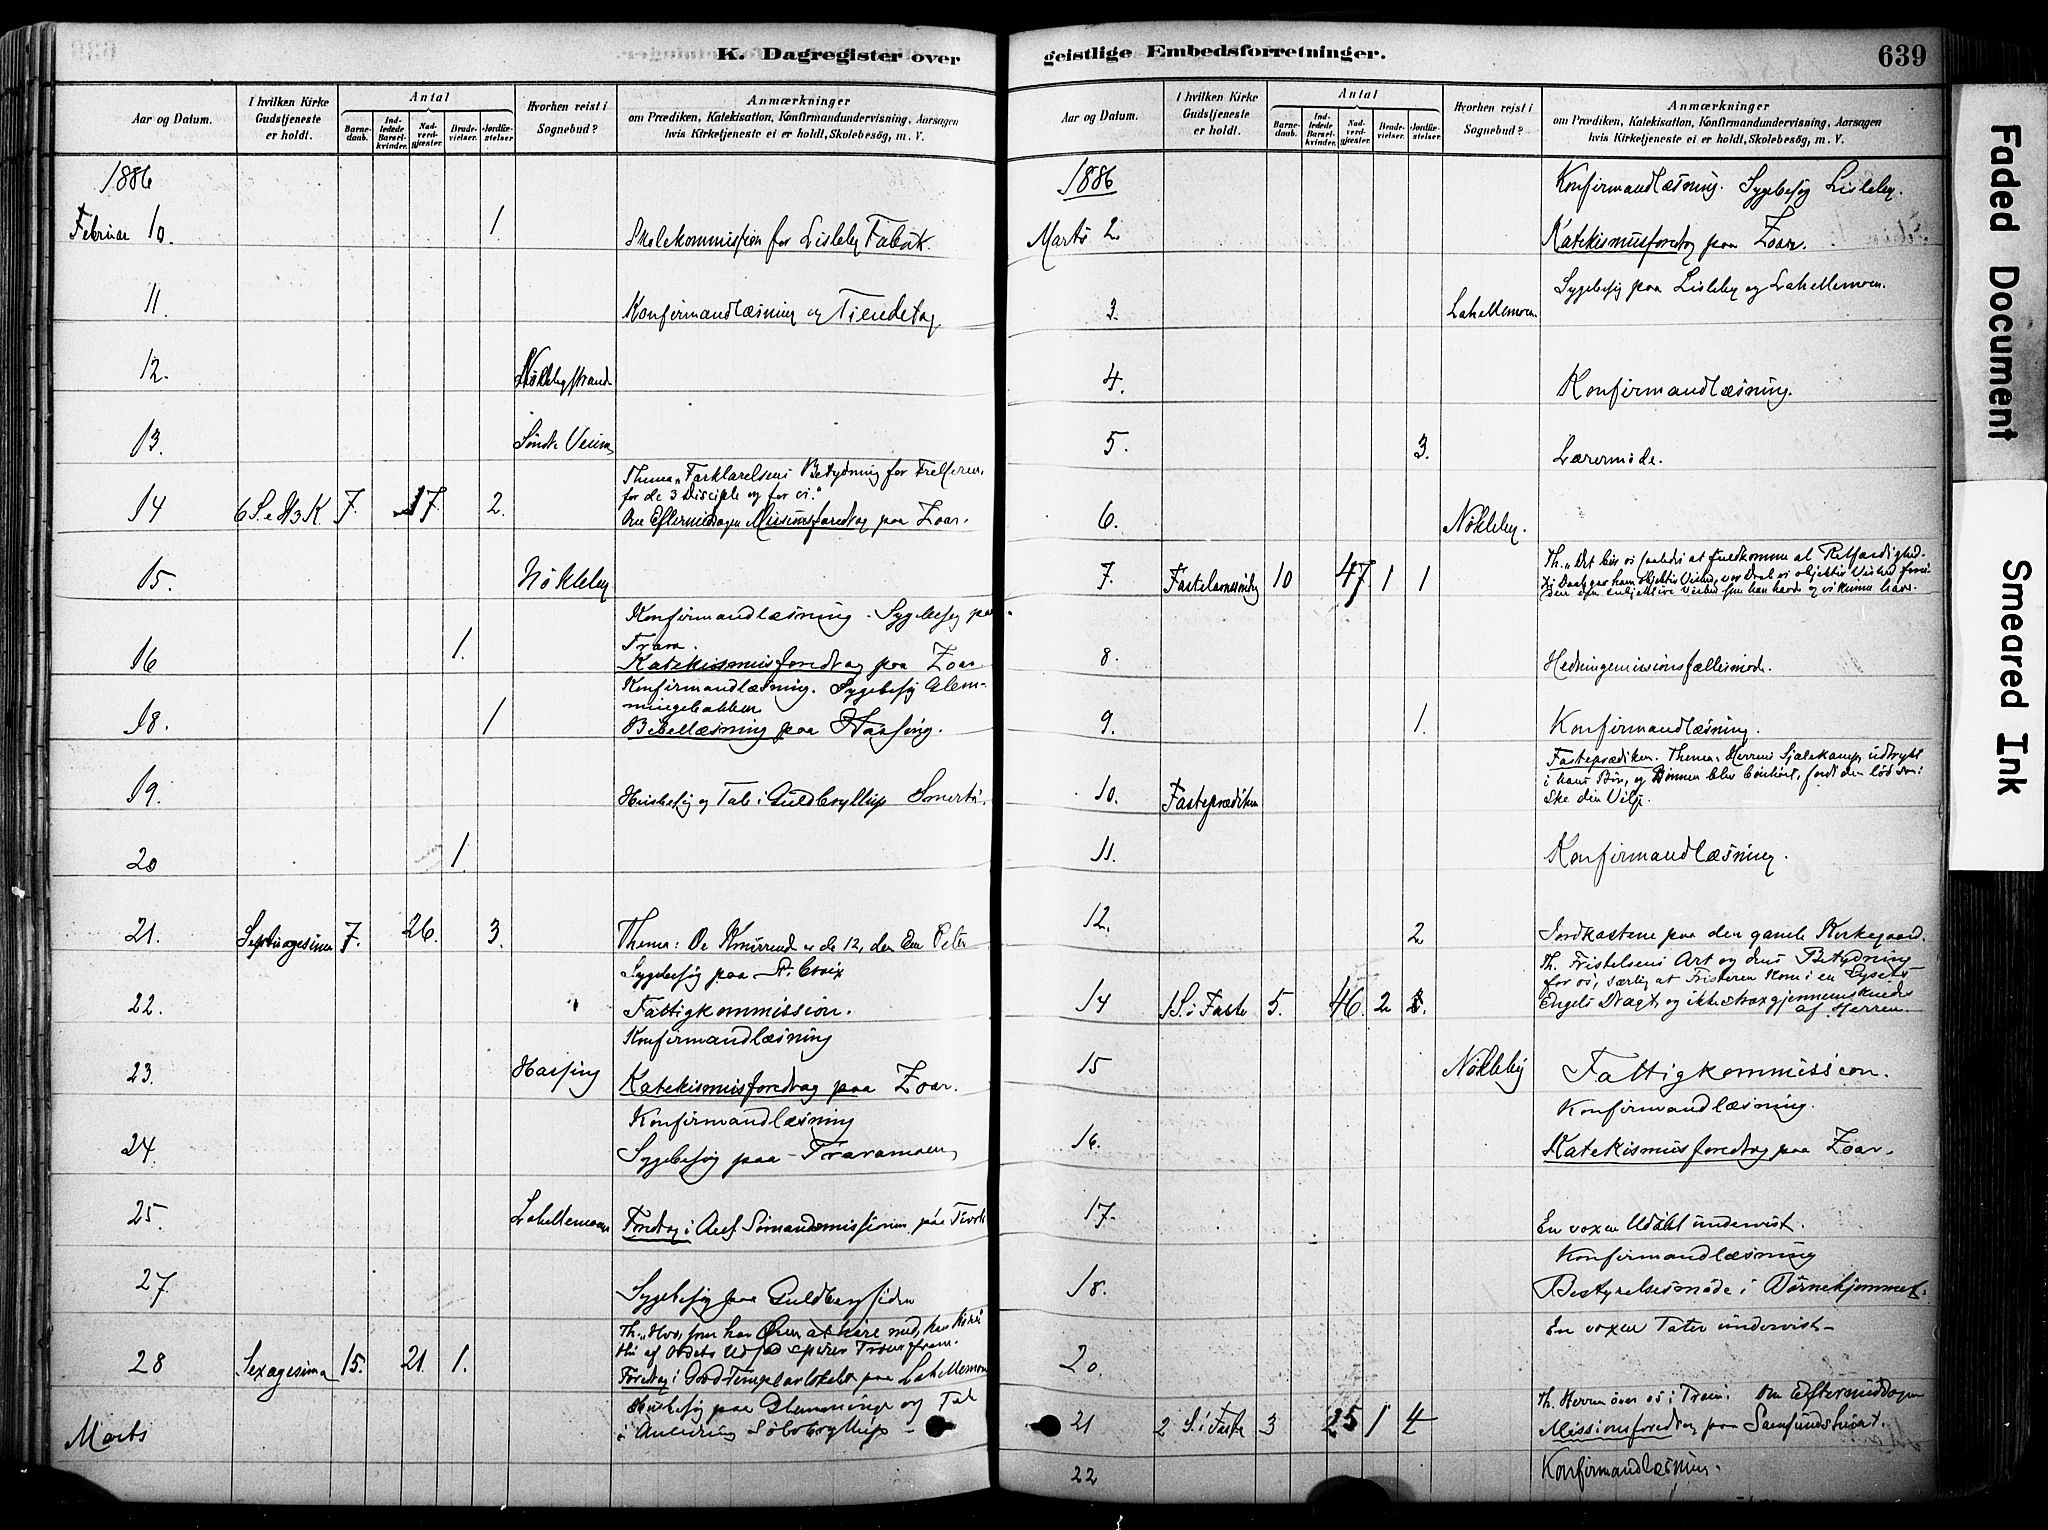 K. Dagregister over
Aar og Datum.
I hvilken Kirke Gudstjeneste er holdt.
Antal
Barnedaab.
Indledede Barselkvinder.
Nadverdgjæster.
Brudevielser.
Jordfæstelser.
Hvorhen reist i Sognebud?
Anmærkninger
om Prædiken, Katekisation, Konfirmandundervisning, Aarsagen
hvis Kirketjeneste ei er holdt, Skolebesøg, m. V.
1886
Februar 10. 1 Skolekommission for Lisleby Fabrik.
11 Konfirmandlæsning og Tiendetag
12. Nøklebystrand
13. Søndre
Thema "Forklarelsens Betydning for Frelseren,
for de 3 Disciple og for vi."
14 6 S. e. H 3 K. 7. 17. 2. Om Eftermiddagen Missionsforedrag paa Zoar.
15. Nøkleby
Konfirmandlæsning. Sygebesøg paa
Trara.
16 1. Katekismusforedrag paa Zoar
Konfirmandlæsning. Sygebesøg Glem-
mingebakken
18. 1 Bibellæsning paa Haasing.
19. Husbesøg og Tale i Guldbryllup
20 1.
21. Septuagesima 7. 26. 3. Thema: De er de 12, den Ene Peter
Sygebesøg paa St. Croix
22. Fattigkommission.
Konfirmandlæsning
23. Haasing Katekismusforedrag paa Zoar.
Konfirmandlæsning
24 Sygebesøg paa Traramoen
25. Lahellemoen Foredrag i Anl Sømandsmissionen paa Tivoli
27. Sygebesøg paa Guldbergsiden
Th. "Hvo, som har Øren at høre med, han høre
28 Sexagesima 15. 21 1. Foredrag i Goodtemplarlokalet paa Lahellemoen
Husbesøg paa Glemminge og Tale
Marts i Anledning Sølvbryllup
geistlige Embedsforretninger.
639
Aar og Datum.
I hvilken Kirke Gudstjeneste er holdt.
Antal
Barnedaab.
Indledede Barselkvinder.
Nadverdgjæster.
Brudevielser.
Jordfæstelser.
Hvorhen reist i Sognebud?
Anmærkninger
om Prædiken, Katekisation, Konfirmandundervisning, Aarsagen
hvis Kirketjeneste ei er holdt, Skolebesøg, m. V.
1886 Konfirmandlæsning. Sygebesøg Lisleby.
Marts 2. Katekismusforedrag paa Zoar.
Sygebesøg paa Lisleby og Lahellemoen.
3. Lahellemoen
4. Konfirmandlæsning.
5. 3. Lærermøde.
6. Nøkleby.
Th. "Det bør os saaledes at fuldkomme al Retfærdighed.
7. Fastelavnssøndag 10 47 1 1
8. Hedningemissionsfællesmøde.
9. 1. Konfirmandlæsning.
Fasteprædiken. Thema: Herrens Sjælekamp udtrykt
i hans Bøn, og Bønnen blev bønhørt, fordi den lød som:
10. Fasteprædiken ske din Vilje.
11. Konfirmandlæsning.
12. 2 Jordkastene paa den gamle Kirkegaard.
Th. Fristelsens Art og dens Betydning
for os, særlig at Fristeren kom i en Lysets
14 1 S. i Faste 5. 46. 2 Engels Dragt og ikke strax gjennemskuedes
af Herren.
15 Nøkleby Fattigkommission.
Konfirmandlæsning.
16. Katekismusforedrag paa Zoar.
17. En voxen Udøbt undervist.
Konfirmandlæsning
18. Bestyrelsesmøde i Børnehjemmet.
En voxen Tater undervist
20.
Th. Herren øver os i Troen. Om Eftermiddagen
21 2 S. i Faste 3 25 1 4 Missionsforedrag paa
22 Konfirmandlæsning.
Faded Document
Smeared Ink